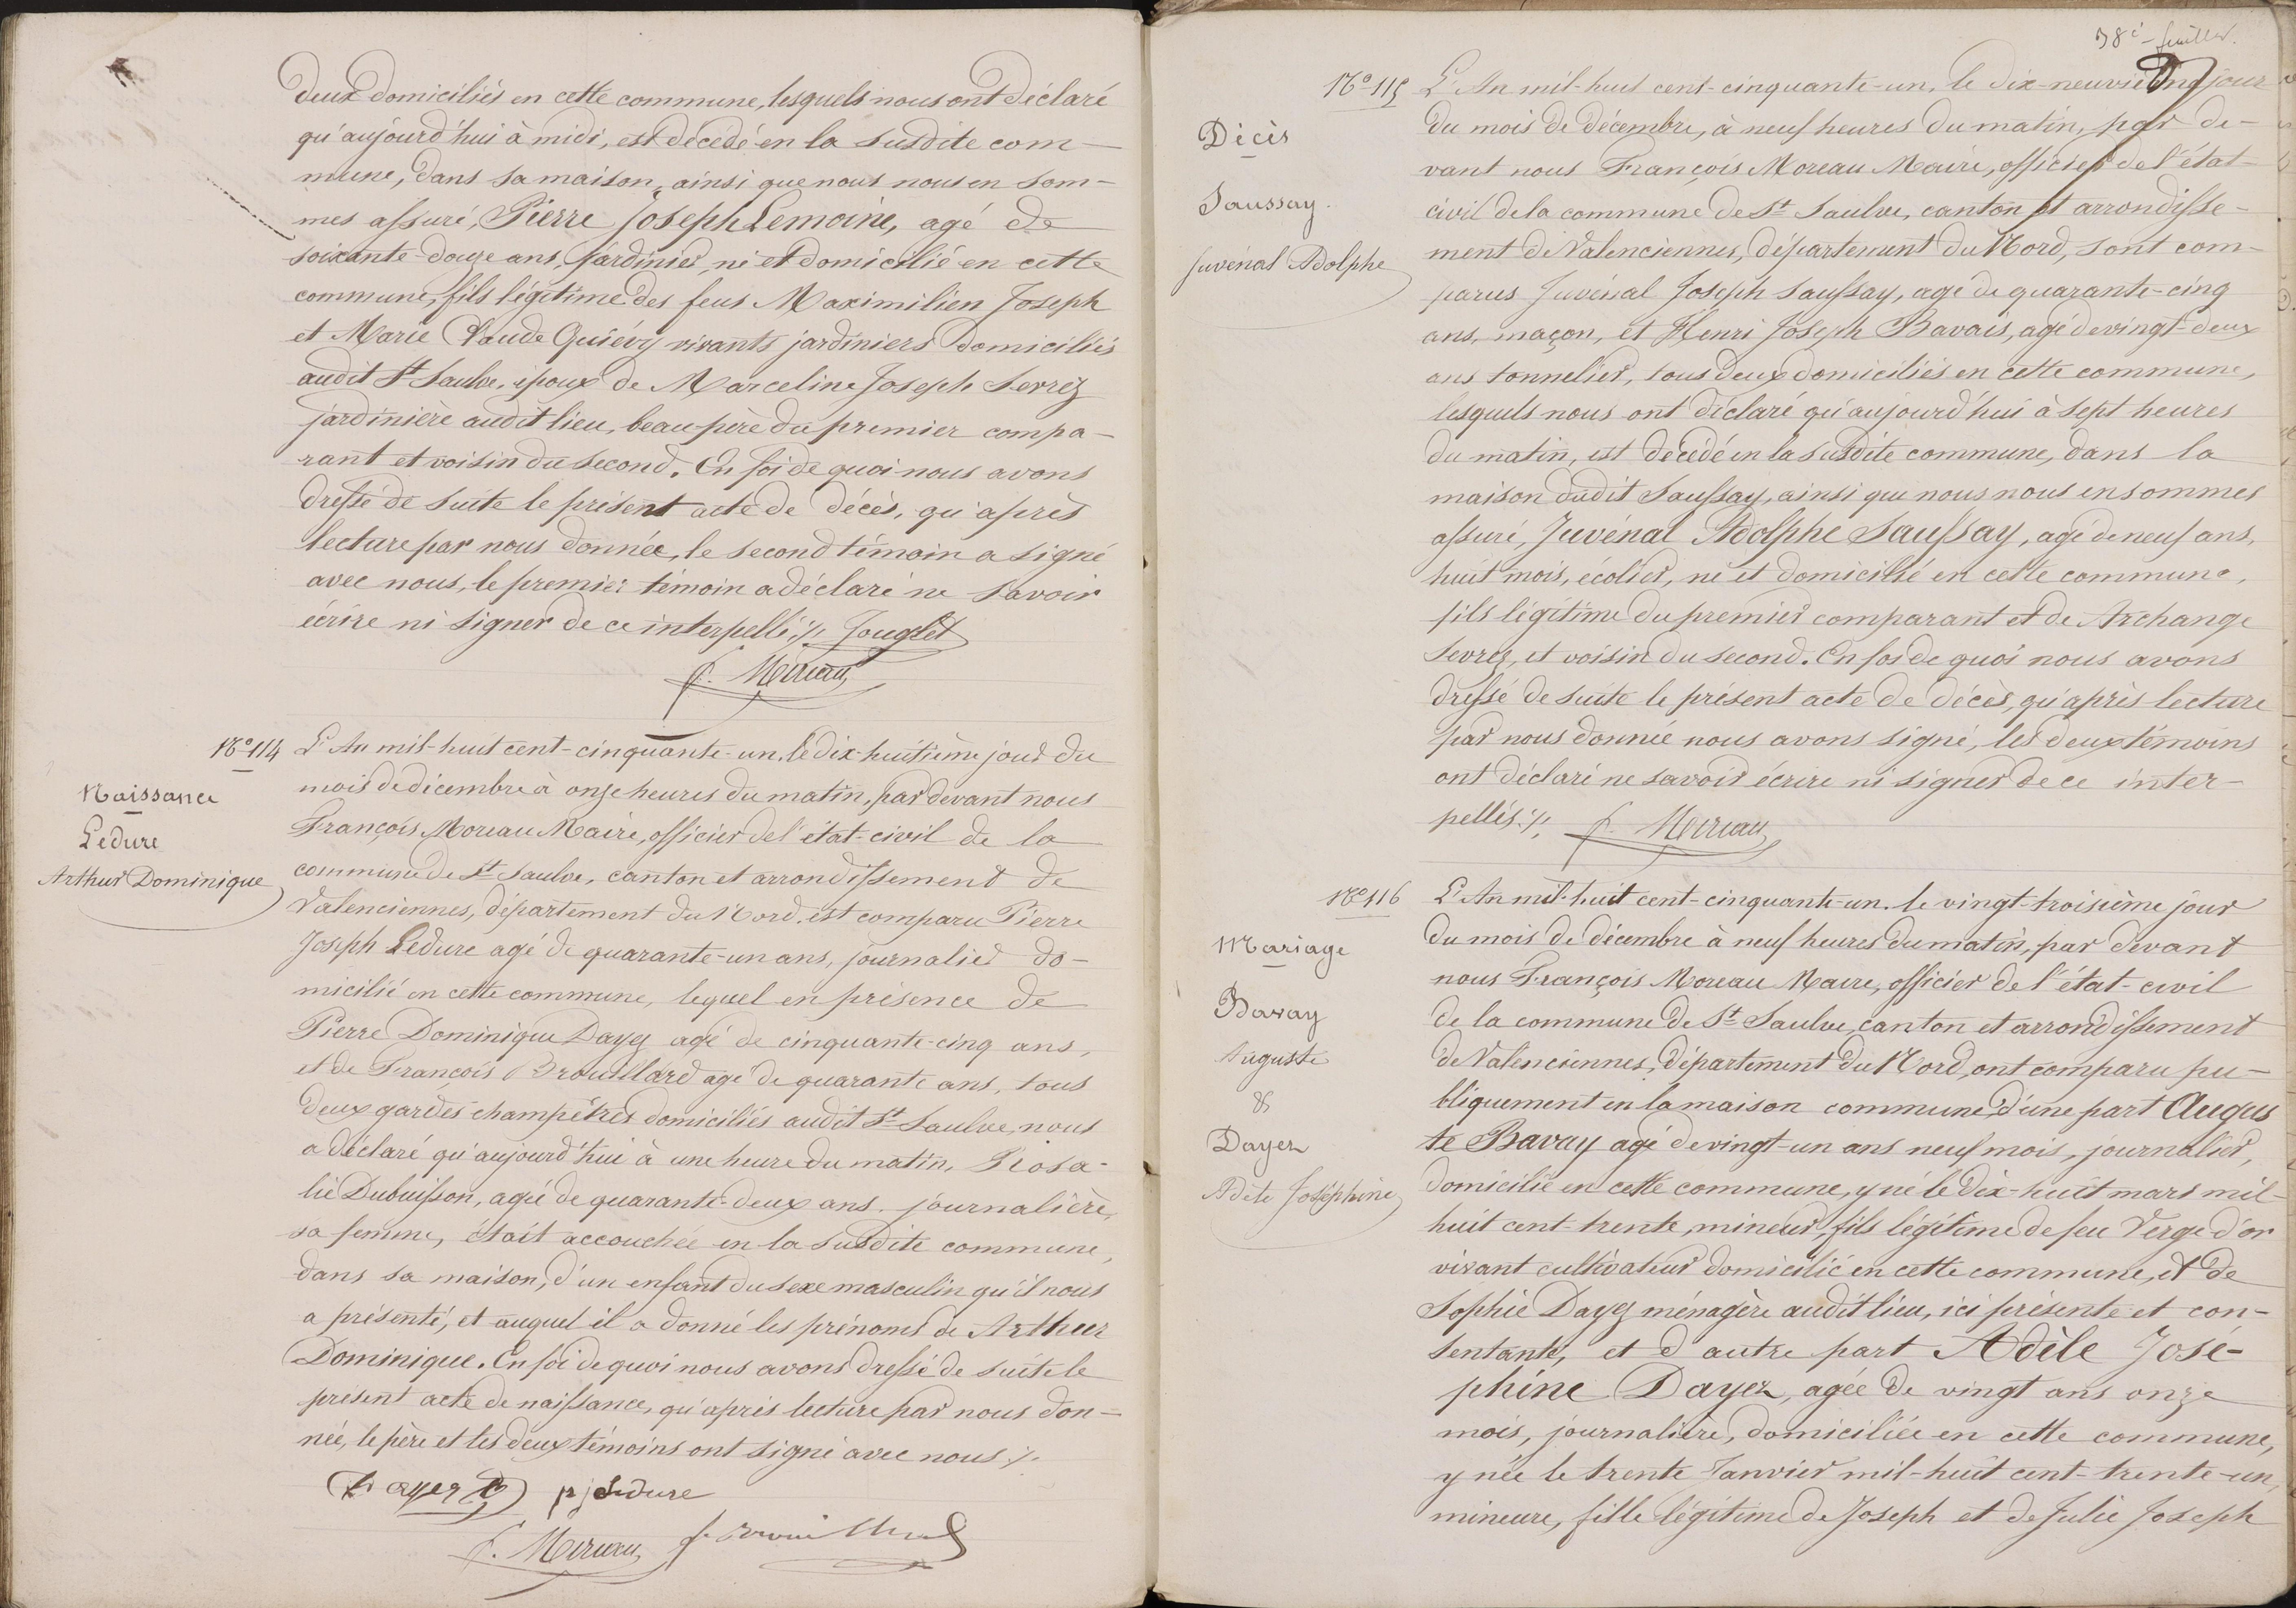 deux domiciliés en cette commune, lesquels nous ont déclaré
qu'aujourd'hui à midi, est décédé en la susdite com-
mune, dans sa maison, ainsi que nous nous en som-
mes assuré, Pierre Joseph Lemoine, agé de
soixante-douze ans, jardinier, né et domicilié en cette
commune, fils légitime des feus Maximilien Joseph
et Marie Claude Quiévy vivants jardiniers domiciliés
audit St Saulve, époux de Marceline Joseph Serrez
jardinière audit lieu, beau-père du premier compa-
rant et voisin du second. En foi de quoi nous avons
dressé de suite le présent acte de décès, qu'après
lecture par nous donnée, le second témoin a signé
avec nous, le premier témoin a déclaré ne savoir
écrire ni signer de ce interpellé ./. Jouglet
f. Moreau
No 114
Naissance
Ledure
Arthur Dominique
L'An mil-huit cent-cinquante-un, le dix-huitième jour du
mois de décembre à onze heures du matin, par devant nous
François Moreau Maire, officier de l'état-civil de la
commune de St Saulve, canton et arrondissement de
Valenciennes, département du Nord, est comparu Pierre
Joseph Ledure agé de quarante-un ans, journalier do-
micilié en cette commune, lequel en présence de
Pierre Dominique Dayez agé de cinquante-cinq ans,
et de François Brouillard agé de quarante ans, tous
deux gardes champêtres domiciliés audit St Saulve, nous
a déclaré qu'aujourd'hui à une heure du matin, Rosa-
lie Dubuisson, agée de quarante-deux ans, journalière,
sa femme, était accouchée en la susdite commune,
dans sa maison, d'un enfant du sexe masculin qu'il nous
a présenté, et auquel il a donné les prénoms de Arthur
Dominique. En foi de quoi nous avons dressé de suite le
présent acte de naissance, qu'après lecture par nous don-
née, le père et les deux témoins ont signé avec nous ./.
Dayez pj Ledure
f. Moreau f. Brouillard
38e feuillet.
No 115
Décès
Saussay
Juvénal Adolphe
L'An mil-huit cent-cinquante-un, le dix-neuvième jour
du mois de décembre, à neuf heures du matin, par de-
vant nous François Moreau Maire, officier de l'état-
civil de la commune de St Saulve, canton et arrondisse-
ment de Valenciennes, département du Nord, sont com-
parus Juvénal Joseph Saussay, agé de quarante-cinq
ans, maçon, et Henri Joseph Bavais, agé de vingt-deux
ans tonnelier, tous deux domiciliés en cette commune,
lesquels nous ont déclaré qu'aujourd'hui à sept heures
du matin, est décédé en la susdite commune, dans la
maison dudit Saussay, ainsi que nous nous en sommes
assuré, Juvénal Adolphe Saussay, agé de neuf ans,
huit mois, écolier, né et domicilié en cette commune,
fils légitime du premier comparant et de Archange
Serrez, et voisin du second. En foi de quoi nous avons
dressé de suite le présent acte de décès, qu'après lecture
par nous donnée nous avons signé, les deux témoins
ont déclaré ne savoir écrire ni signer de ce inter-
pellés ./. f. Moreau
No 116
Mariage
Bavay
Auguste
&
Dayez
Adèle Joséphine
L'An mil-huit cent-cinquante-un, le vingt-troisième jour
du mois de décembre à neuf heures du matin, par devant
nous François Moreau Maire, officier de l'état-civil
de la commune de St Saulve, canton et arrondissement
de Valenciennes, département du Nord, ont comparu pu-
bliquement en la maison commune, d'une part Augus
te Bavay agé de vingt-un ans neuf mois, journalier,
domicilié en cette commune, y né le dix-huit mars mil-
huit cent-trente, mineur, fils légitime de feu Verge d'or
vivant cultivateur domicilié en cette commune, et de
Sophie Dayez ménagère audit lieu, ici présente et con-
sentante, et d'autre part Adèle José-
phine Dayez, agée de vingt ans onze
mois, journalière, domiciliée en cette commune,
y née le trente Janvier mil-huit cent-trente-un,
mineure, fille légitime de Joseph et de Julie Joseph